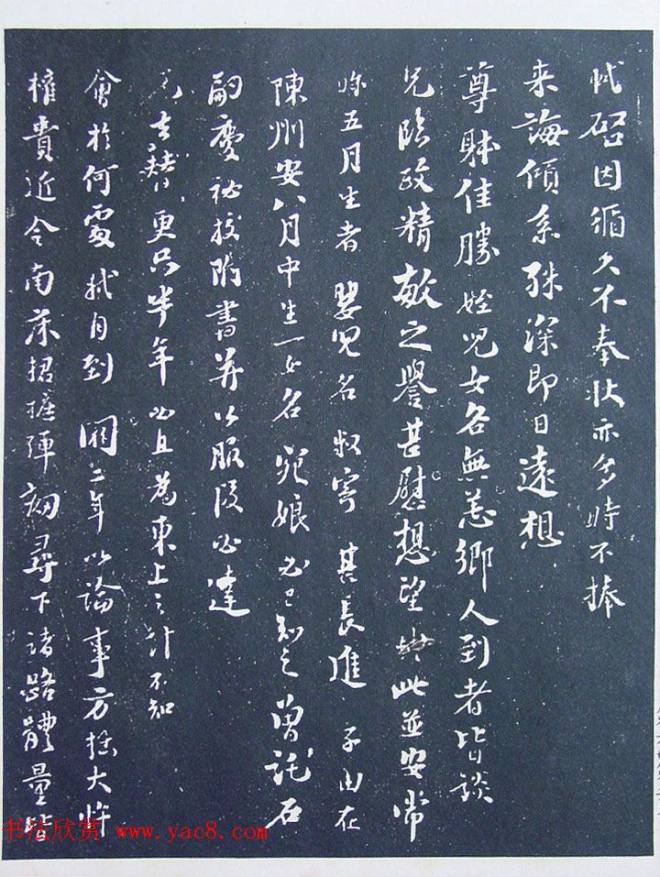 軾啓因循久不奉狀亦多時不捧
来誨傾系殊深即日遠想
尊躰佳勝姪兒女各無恙鄉人到者皆談
兄臨政精敏之譽甚慰想望此並安常
五月生者嬰兒名叔寄甚長進子由在
陳州安八月中生一女名宛娘必已知之曾託石
嗣慶祕校附書并以服段必達
更只半年必且為東上之計不知
會於何處軾自到闕二年以論事方拙大忤
權貴近令南床捃摭彈劾尋下諸路體量
书法欣赏 www.yac8.com